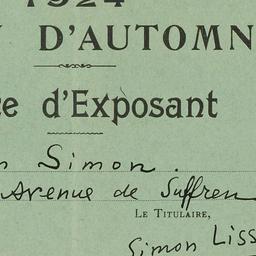 1924
D'AUTOMN
d'Exposant
Simon.
Avenue de Suffren
LE TITULAIRE,
Simon Liss